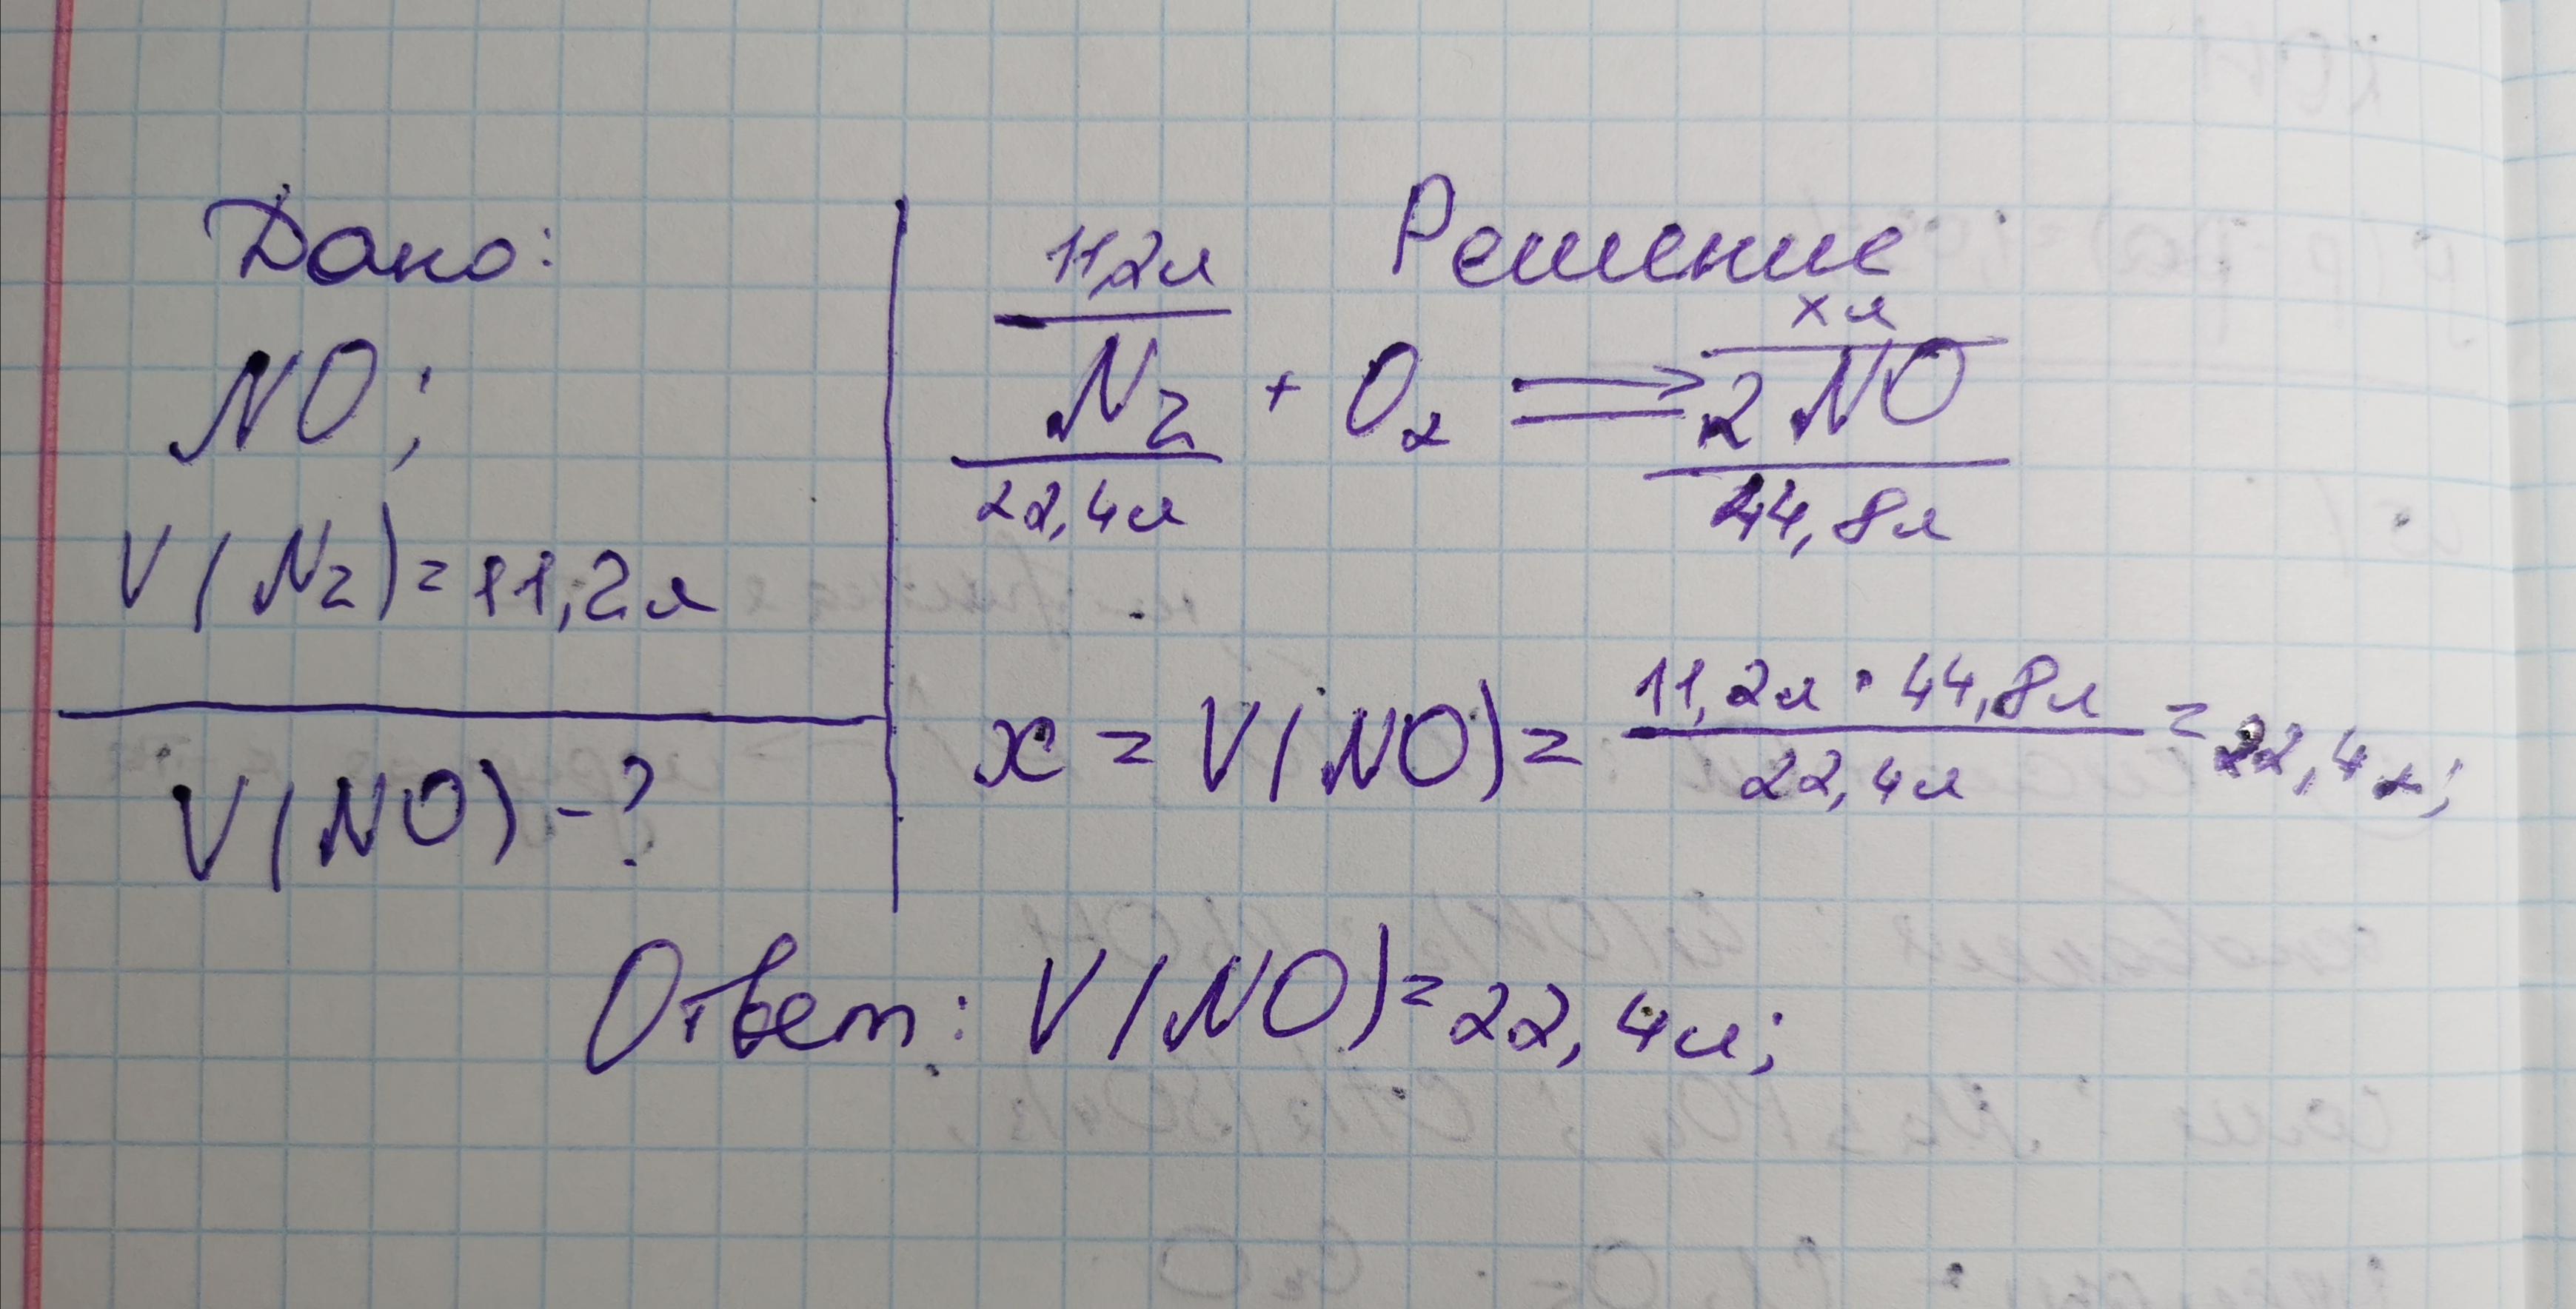 Дано:
NO;
V(N₂)=11,2л
V(NO)-?
Решение
11,2л
xл
N₂ + O₂ ⇒ 2NO
22,4л
44,8л
x = V(NO) = 11,2л · 44,8л / 22,4л = 22,4л;
Ответ: V(NO)=22,4л;